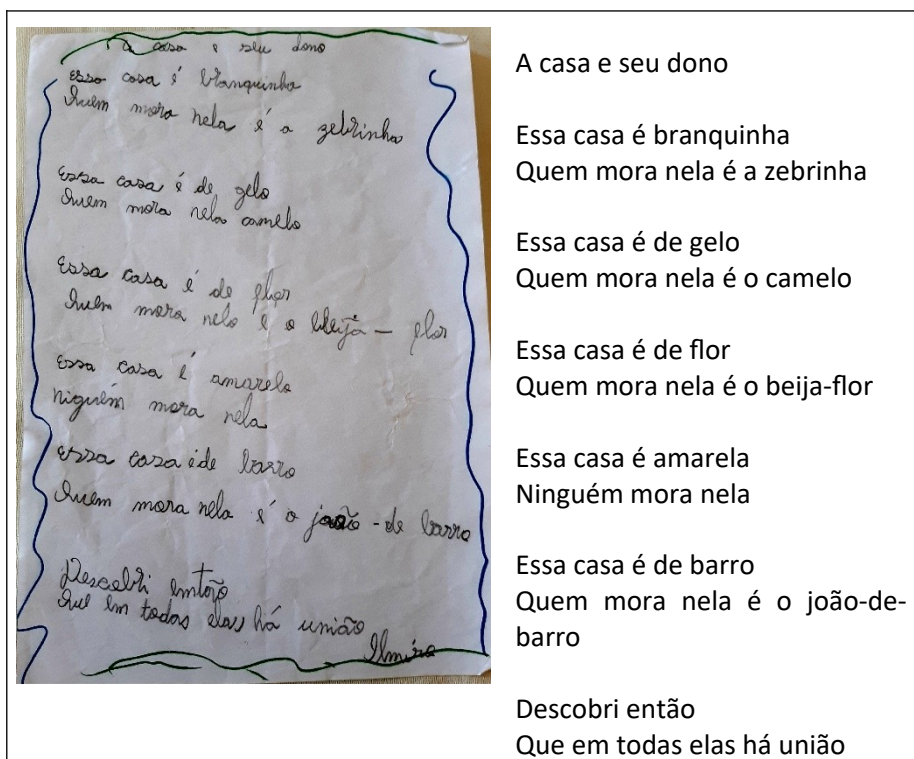 A casa e seu dono
Essa casa é branquinha
Quem mora nela é a zebrinha
Essa casa é de gelo
Quem mora nela camelo
Essa casa é de flor
Quem mora nela é o beija - flor
Essa casa é amarela
niguém mora nela
Essa casa é de barro
Quem mora nela é o joão - de barro
Descobri emtão
Que em todas elas há união
Ilmíra
A casa e seu dono
Essa casa é branquinha
Quem mora nela é a zebrinha
Essa casa é de gelo
Quem mora nela é o camelo
Essa casa é de flor
Quem mora nela é o beija-flor
Essa casa é amarela
Ninguém mora nela
Essa casa é de barro
Quem mora nela é o joão-de-
barro
Descobri então
Que em todas elas há união